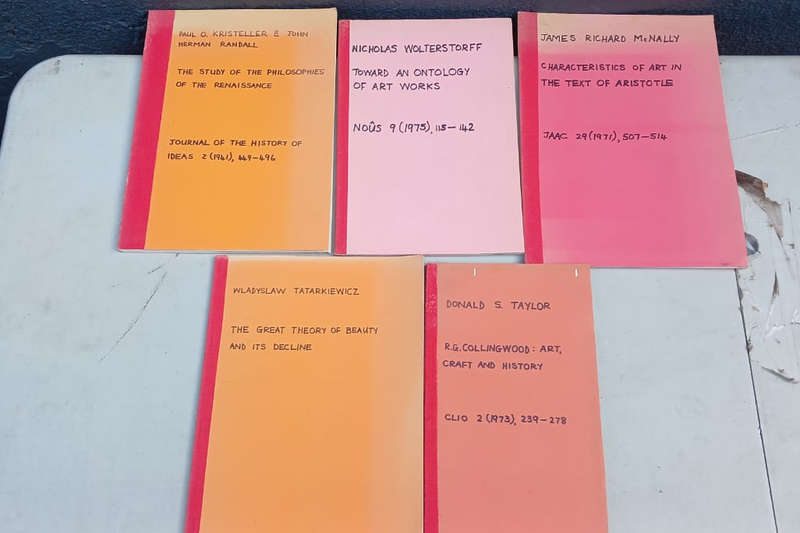 PAUL O. KRISTELLER & JOHN
HERMAN RANDALL
THE STUDY OF THE PHILOSOPHIES
OF THE RENAISSANCE
JOURNAL OF THE HISTORY OF
IDEAS 2 (1941), 449-496
NICHOLAS WOLTERSTORFF
TOWARD AN ONTOLOGY
OF ART WORKS
NOÛS 9 (1975), 115-142
JAMES RICHARD McNALLY
CHARACTERISTICS OF ART IN
THE TEXT OF ARISTOTLE
JAAC 29 (1971), 507-514
WLADYSLAW TATARKIEWICZ
THE GREAT THEORY OF BEAUTY
AND ITS DECLINE
DONALD S. TAYLOR
R.G. COLLINGWOOD: ART,
CRAFT AND HISTORY
CLIO 2 (1973), 239-278